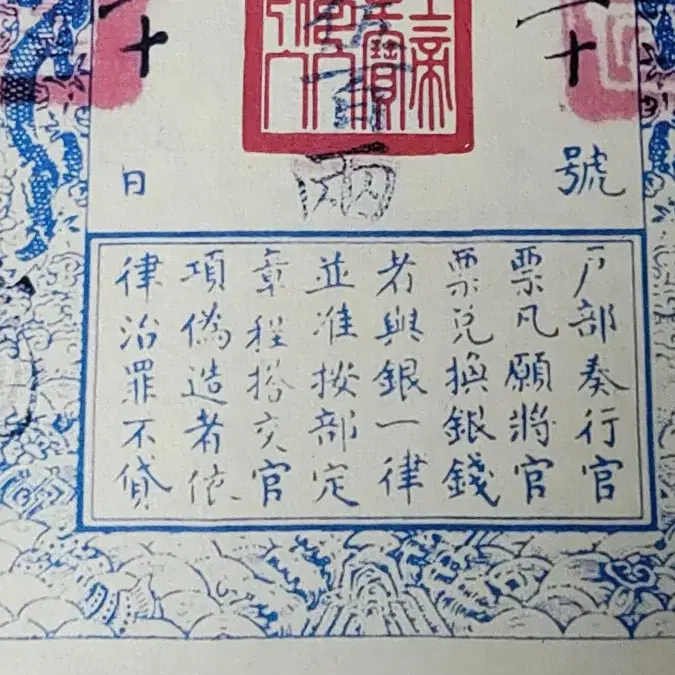 二十
號
兩
十
日
戶部奏行官
票凡願將官
票兑換銀錢
者與銀一律
並准按部定
章程搭交官
項偽造者依
律治罪不貸